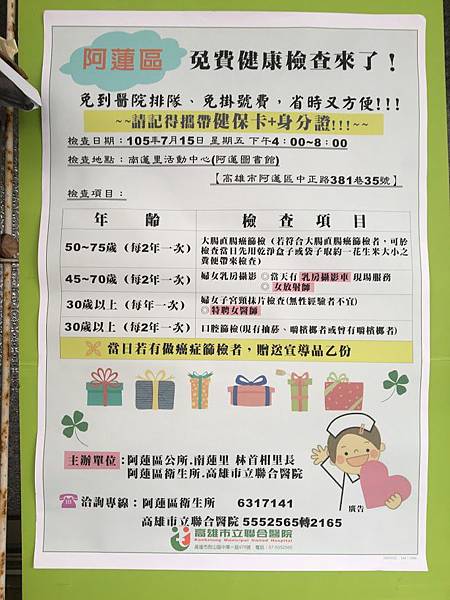 阿蓮區 免費健康檢查來了！
免到醫院排隊、免掛號費，省時又方便!!!
~~請記得攜帶健保卡+身分證!!!~~
檢查日期：105年7月15日 星期五 下午4：00~8：00
檢查地點：南蓮里活動中心(阿蓮圖書館)
【高雄市阿蓮區中正路381巷35號】
檢查項目：
年 齡 檢 查 項 目
50~75歲 (每2年一次) 大腸直腸癌篩檢（若符合大腸直腸癌篩檢者，可於
檢查當日先用乾淨盒子或袋子取約一花生米大小之
糞便帶來檢查）
45~70歲 (每2年一次) 婦女乳房攝影 ◎當天有 乳房攝影車 現場服務
◎女放射師
30歲以上 (每年一次) 婦女子宮頸抹片檢查(無性經驗者不宜)
◎特聘女醫師
30歲以上 (每2年一次) 口腔篩檢(現有抽菸、嚼檳榔者或曾有嚼檳榔者)
當日若有做癌症篩檢者，贈送宣導品乙份
主辦單位：阿蓮區公所.南蓮里 林首相里長
阿蓮區衛生所.高雄市立聯合醫院
洽詢專線：阿蓮區衛生所 6317141
廣告
高雄市立聯合醫院 5552565轉2165
高雄市立聯合醫院
Kaohsiung Municipal United Hospital
高雄市鼓山區中華一路976號 電話：07-5552565